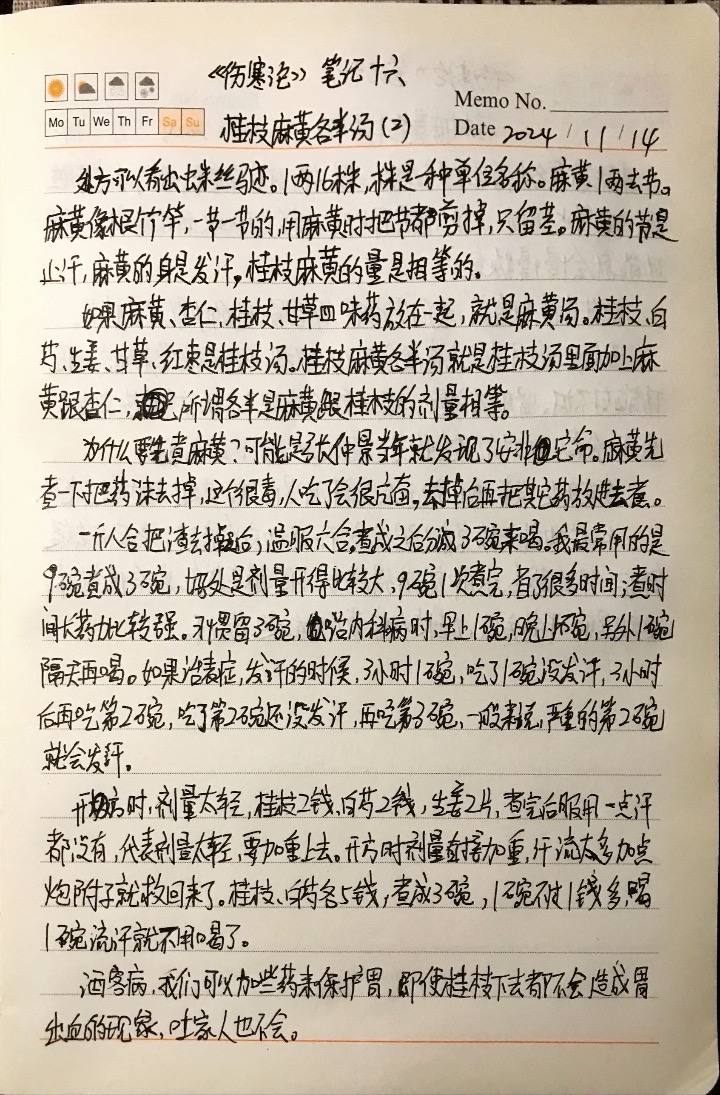 《伤寒论》笔记十六
Memo No.
Mo Tu We Th Fr Sa Su
桂枝麻黄各半汤(2)
Date 2024 / 11 / 14
处方可以看出蛛丝马迹。1两16株,株是一种单位名称。麻黄1两去节。
麻黄像根竹竿,一节一节的,用麻黄时把节都剪掉,只留茎。麻黄的节是
止汗,麻黄的身是发汗,桂枝麻黄的量是相等的。
如果麻黄、杏仁、桂枝、甘草四味药放在一起,就是麻黄汤。桂枝、白
芍、生姜、甘草、红枣是桂枝汤。桂枝麻黄各半汤就是桂枝汤里面加上麻
黄跟杏仁,所谓各半是麻黄跟桂枝的剂量相等。
为什么要先煮麻黄?可能是张仲景当年就发现了安非他命。麻黄先
煮一下把药沫去掉,这个很毒,人吃了会很亢奋。去掉后再把其它药放进去煮。
一升八合把渣去掉后,温服六合,煮成之后分成3碗来喝。我最常用的是
9碗煮成3碗,好处是剂量开得比较大,9碗1次煮完,省了很多时间;煮时
间长药力比较强。不惧留3碗,治内科病时,早上1碗,晚上1碗,另外1碗
隔天再喝。如果治表症,发汗的时候,3小时1碗,吃了1碗没发汗,3小时
后再吃第2碗,吃了第2碗还没发汗,再吃第3碗,一般来说,严重的第2碗
就会发汗。
开方时,剂量太轻,桂枝2钱、白芍2钱,生姜2片,煮完后服用一点汗
都没有,代表剂量太轻,要加重上去。开方时剂量直接加重,汗流太多加点
炮附子就救回来了。桂枝、白芍各5钱,煮成3碗,1碗不过1钱多,喝
1碗流汗就不用喝了。
酒客病,我们可以加些药来保护胃,即使桂枝下去都不会造成胃
出血的现象,吐家人也不会。